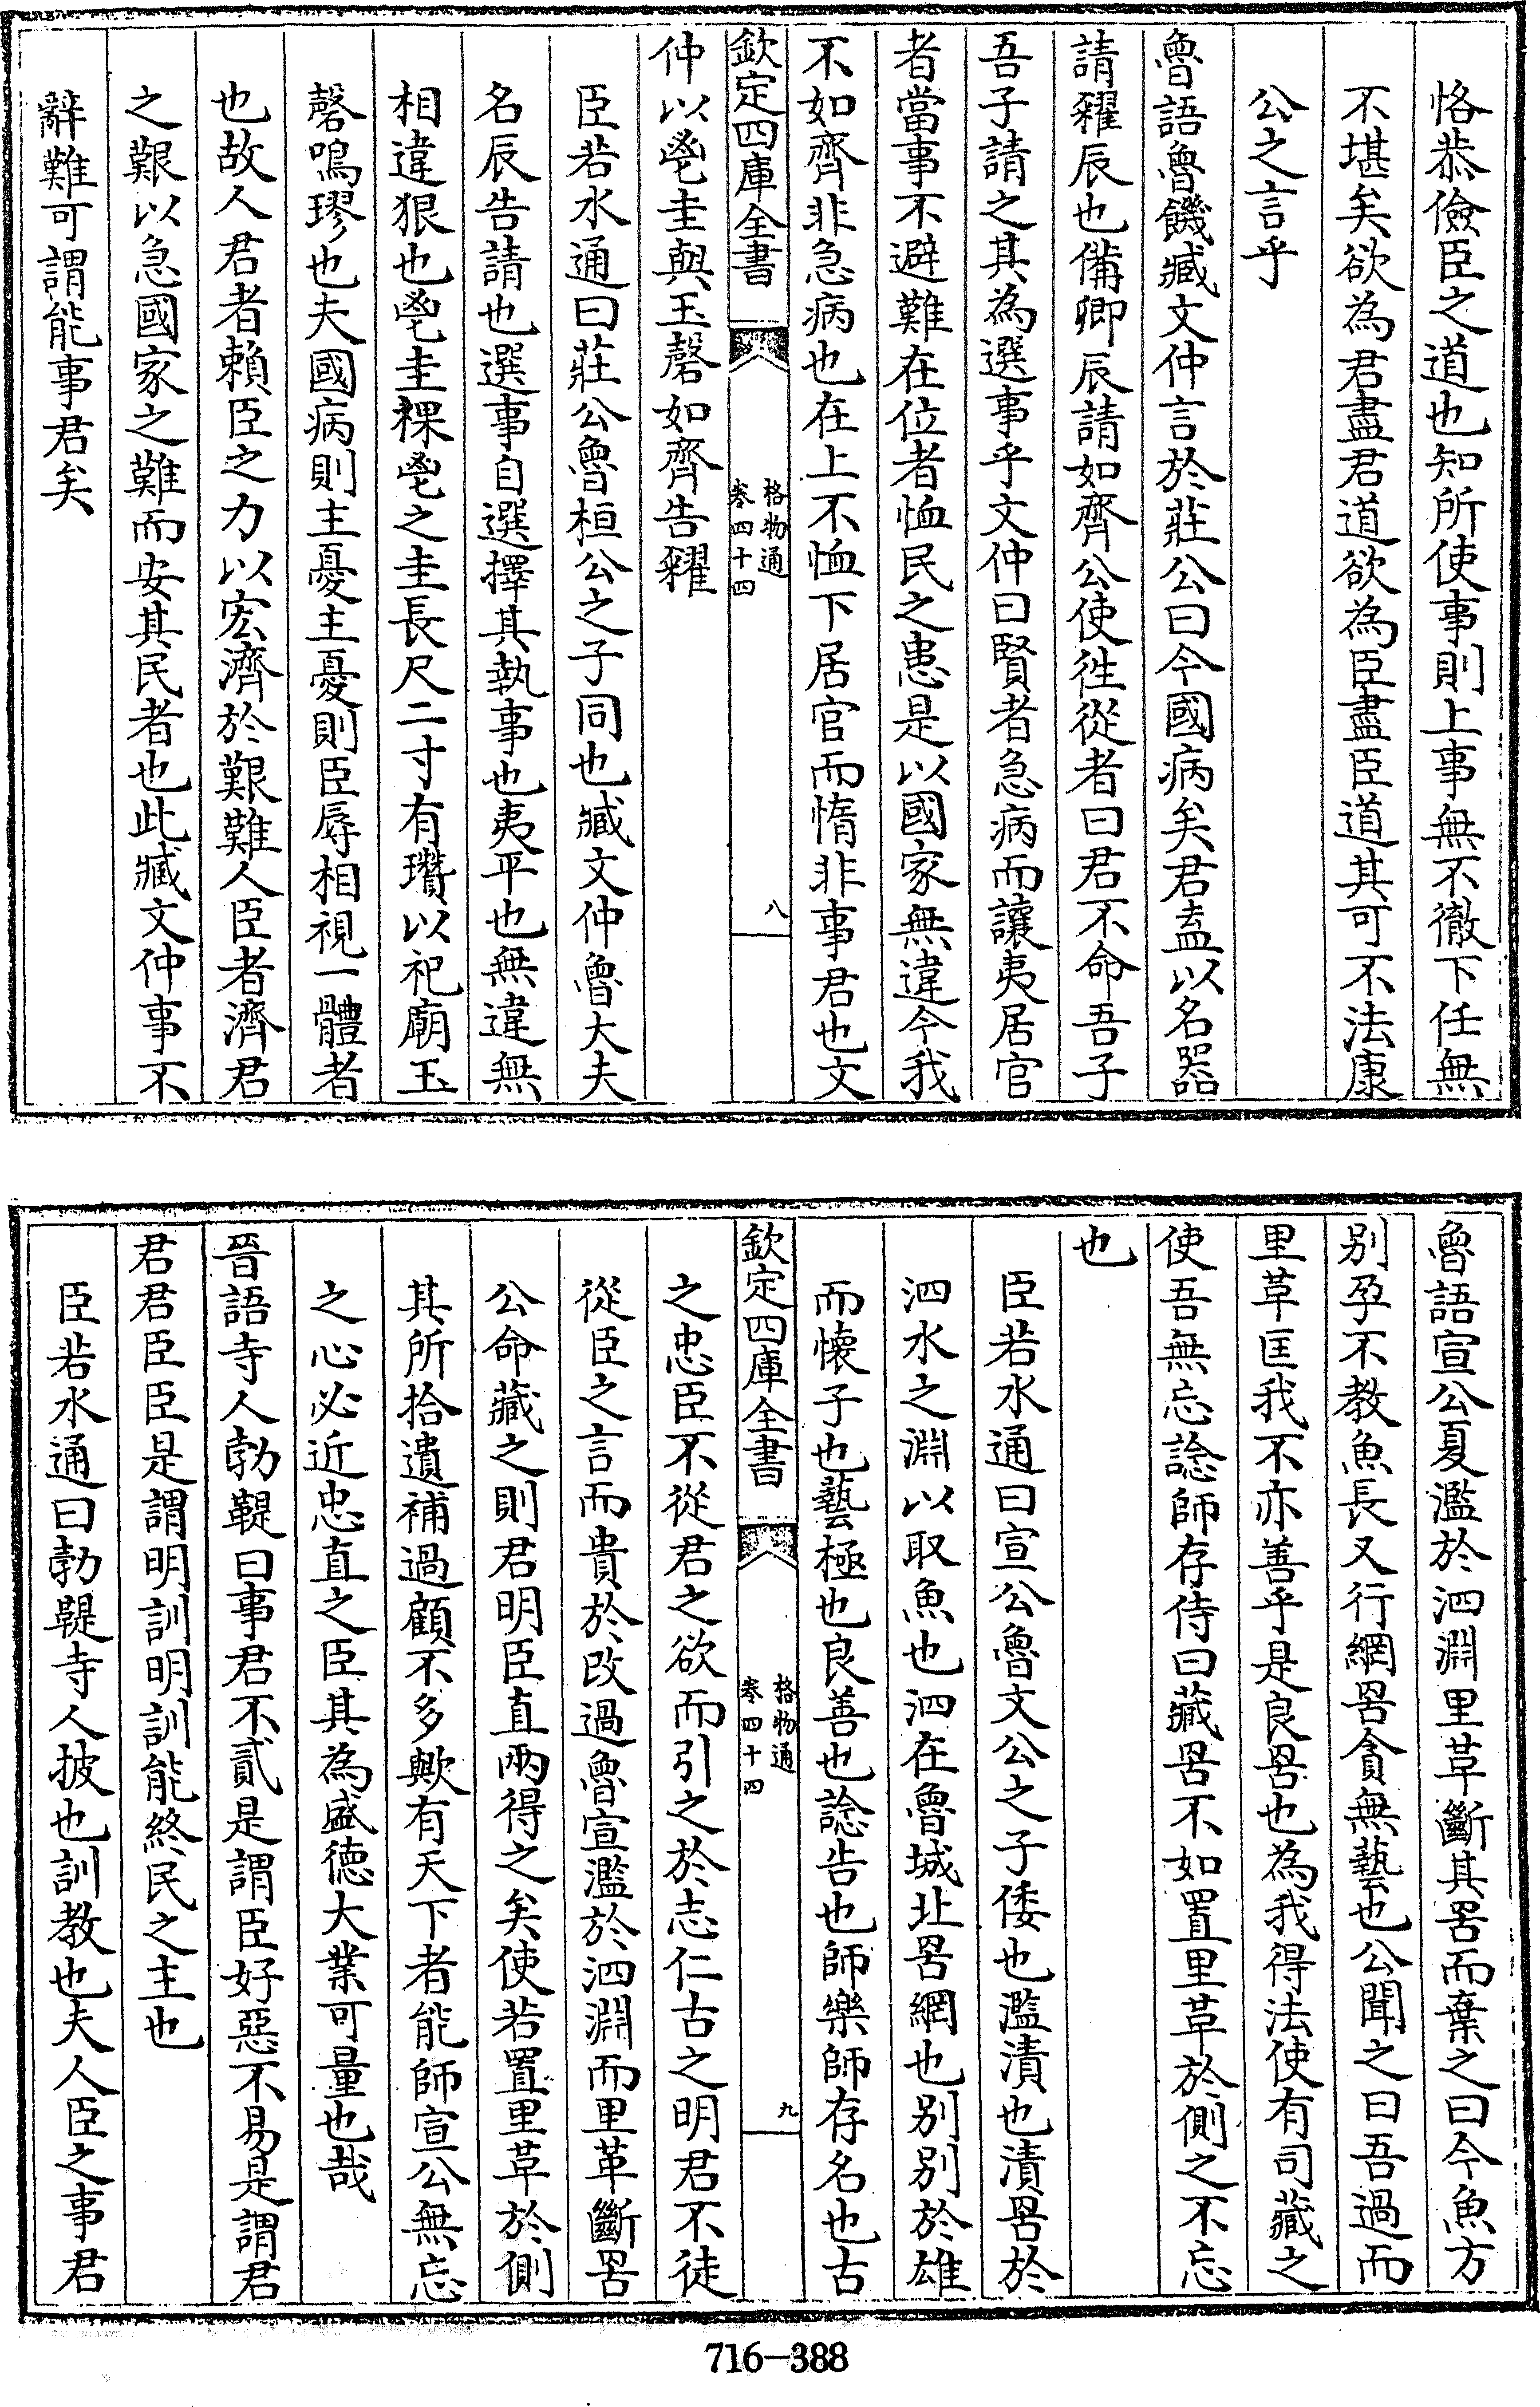 恪恭儉臣之道也知所使事則上事無不徹下任無
不堪矣欲為君盡君道欲為臣盡臣道其可不法康
公之言乎
魯語魯饑臧文仲言於莊公曰今國病矣君盍以名器
請糴辰也備卿辰請如齊公使徃從者曰君不命吾子
吾子請之其為選事乎文仲曰賢者急病而讓夷居官
者當事不避難在位者恤民之患是以國家無違今我
不如齊非急病也在上不恤下居官而惰非事君也文
欽定四庫全書
格物通
卷四十四
八
仲以鬯圭與玉磬如齊告糴
臣若水通曰莊公魯桓公之子同也臧文仲魯大夫
名辰告請也選事自選擇其執事也夷平也無違無
相違狠也鬯圭祼鬯之圭長尺二寸有瓚以祀廟玉
磬鳴璆也夫國病則主憂主憂則臣辱相視一體者
也故人君者賴臣之力以宏濟於艱難人臣者濟君
之艱以急國家之難而安其民者也此臧文仲事不
辭難可謂能事君矣
魯語宣公夏濫於泗淵里革斷其罟而棄之曰今魚方
别孕不教魚長又行網罟貪無藝也公聞之曰吾過而
里革匡我不亦善乎是良罟也為我得法使有司藏之
使吾無忘諗師存侍曰藏罟不如置里革於側之不忘
也
臣若水通曰宣公魯文公之子倭也濫漬也漬罟於
泗水之淵以取魚也泗在魯城北罟網也别别於雄
而懐子也藝極也良善也諗告也師樂師存名也古
欽定四庫全書
格物通
卷四十四
九
之忠臣不從君之欲而引之於志仁古之明君不徒
從臣之言而貴於改過魯宣濫於泗淵而里革斷罟
公命藏之則君明臣直兩得之矣使若置里革於側
其所拾遺補過顧不多歟有天下者能師宣公無忘
之心必近忠直之臣其為盛德大業可量也哉
晉語寺人勃鞮曰事君不貳是謂臣好惡不易是謂君
君君臣臣是謂明訓明訓能終民之主也
臣若水通曰勃鞮寺人披也訓教也夫人臣之事君
716-388